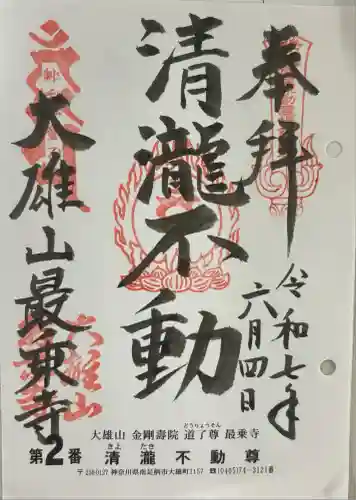 奉拝
令和七年
六月四日
清瀧不動
大雄山最乗寺
大雄山 金剛壽院 道了尊 最乗寺
どうりょうそん
第2番 清瀧不動尊
きよ たき
神奈川県南足柄市大雄町1157